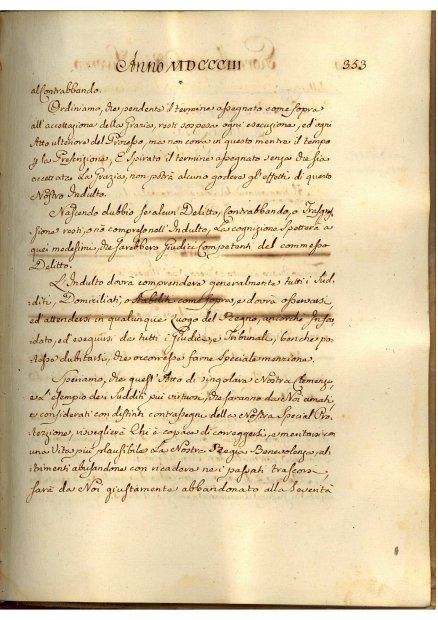 Anno MDCCCIII 353
al Contrabbando.
Ordiniamo, che pendente il termine assegnato come sopra
all'accettazione della Grazia, resti sospesa ogni esecuzione, ed ogni
Atto ulteriore del Processo, ma non corra in questo mentre il tempo
p la Prescrizione, E spirato il termine assegnato senza che sia
accettata La Grazia, non potrà alcuno godere gli effetti di questo
Nostro Indulto.
Nascendo dubbio se alcun Delitto, Contrabbando, o Trasgres-
sione resti, o nò compreso nell'Indulto, La cognizione spetterà a
quei medesimi, che sarebbero Giudici Competenti del commesso
Delitto.
L'Indulto dovrà comprendere generalmente tutti i Sud-
diti, Domiciliati, o stabiliti come sopra, e dovrà osservarsi,
ed attendersi in qualunque Luogo del Regno, ancorchè Infeu-
dato, ed eseguirsi da tutti i Giudici, e Tribunali, benchè po-
tesse dubitarsi, che occoresse farne speciale menzione.
Speriamo, che quest'Atto di singolare Nostra Clemenza,
e l'esempio dei Sudditi più virtuosi, che saranno da Noi amati,
e considerati con distinti contrassegni della Nostra Special Pro-
tezione, risveglierà Chi è capace di correggersi, e meritarsi con
una Vita più plausibile La Nostra Regia Benevolenza, al-
trimenti abusandone con ricadere ne i passati trascorsi,
sarà da Noi giustamente abbandonato alla Severità